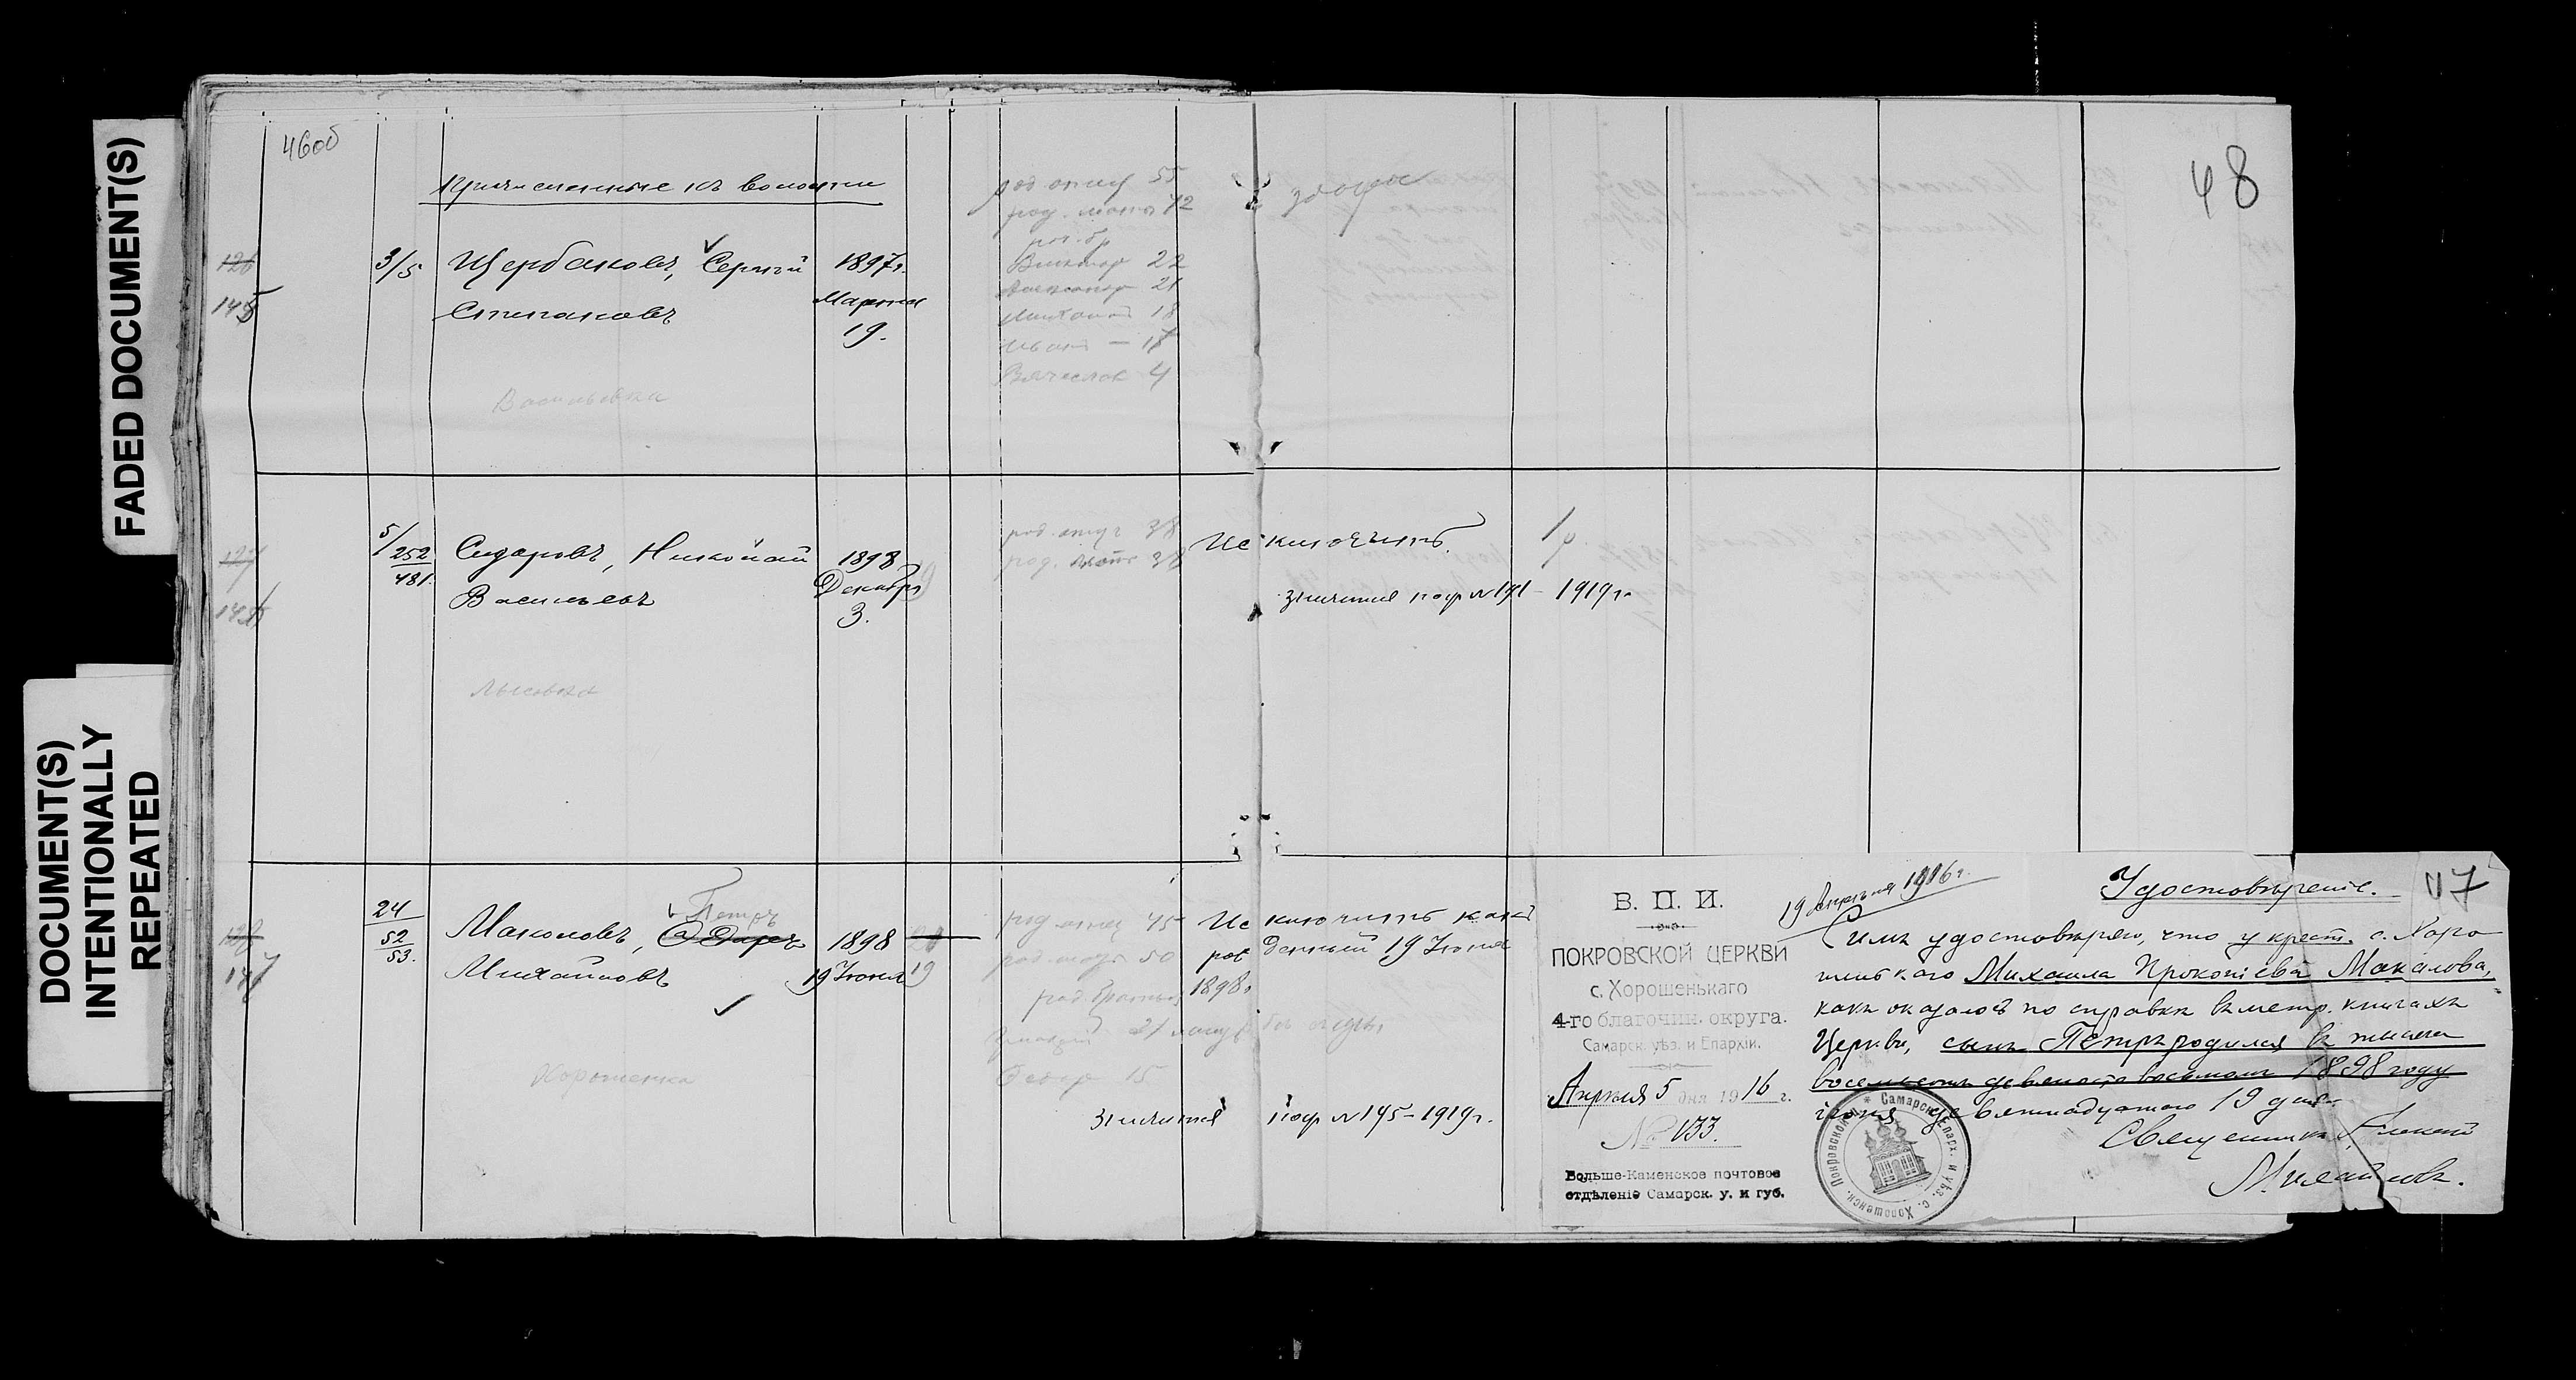 FADED DOCUMENT(S)
DOCUMENT(S)
INTENTIONALLY
REPEATED
46об
48
Причисленные къ волости
126
145
3/5
Щербаковъ, Сергѣй
Степановъ
1897г.
Марта
19.
Васильевка
род. отец 55
род. мать 42
род. бр
Виктор 22
Александр 21
18
Иван — 17
Вячеслав 4
127
5/252
481.
Сидоровъ, Николай
Васильевъ
1898
Декабря
3.
Лысовка
род. отец 38
род. мать 38
Исключить
1/р
значится под № 191 – 1919 г.
128
147
24
52
53.
Маколовъ, Петръ
Ѳедоръ
Михайловъ
1898
19 Iюня
20
19
Хорошенка
род. отец 45
род. мать 50
род. братья
21
Федор 15
Исключить какъ
рожденный 19 Iюня
1898г
значится под № 195 – 1919 г.
47
В. П. И.
ПОКРОВСКОЙ ЦЕРКВИ
с. Хорошенькаго
4-го благочин. округа.
Самарск. уѣз. и Епархіи.
Апрѣля 5 дня 1916 г.
№ 133.
Больше-Каменское почтовое
отдѣленіе Самарск. у. и губ.
19 Апрѣля 1916 г.
Удостовѣреніе.
Симъ удостовѣряю, что у крест. с. Хоро
шенькаго Михаила Прокопіева Макалова,
какъ оказалось по справкѣ въ метр. книгахъ
Церкви, сынъ Петръ родился въ тысяча
восемьсотъ девяносто восьмомъ 1898 году
іюня девятнадцатаго 19 дня.
Священникъ Алексѣй
Михайловъ.
Покровской * Самарск. Епарх. и уѣз. с. Хорошенск.